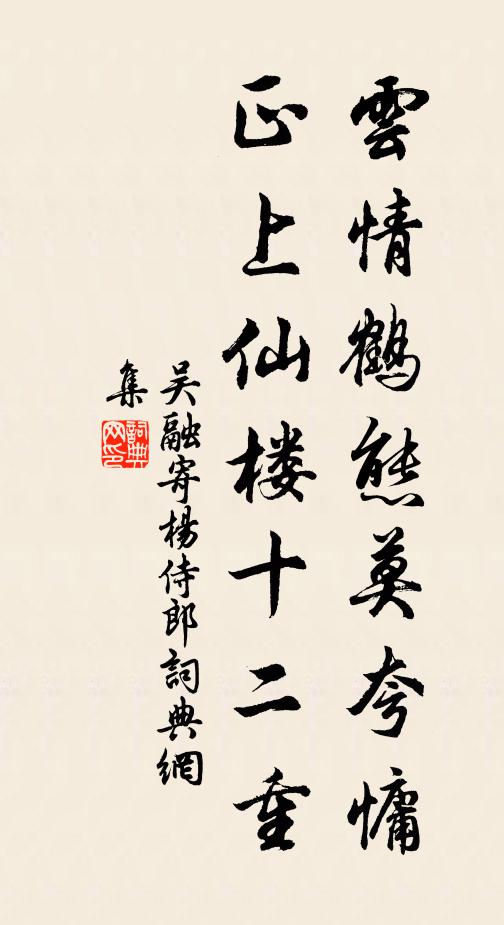 雲情鶴態莫夸慵
正上仙楼十二重
吴融寄楊侍郎詞典網
集
詞典网印